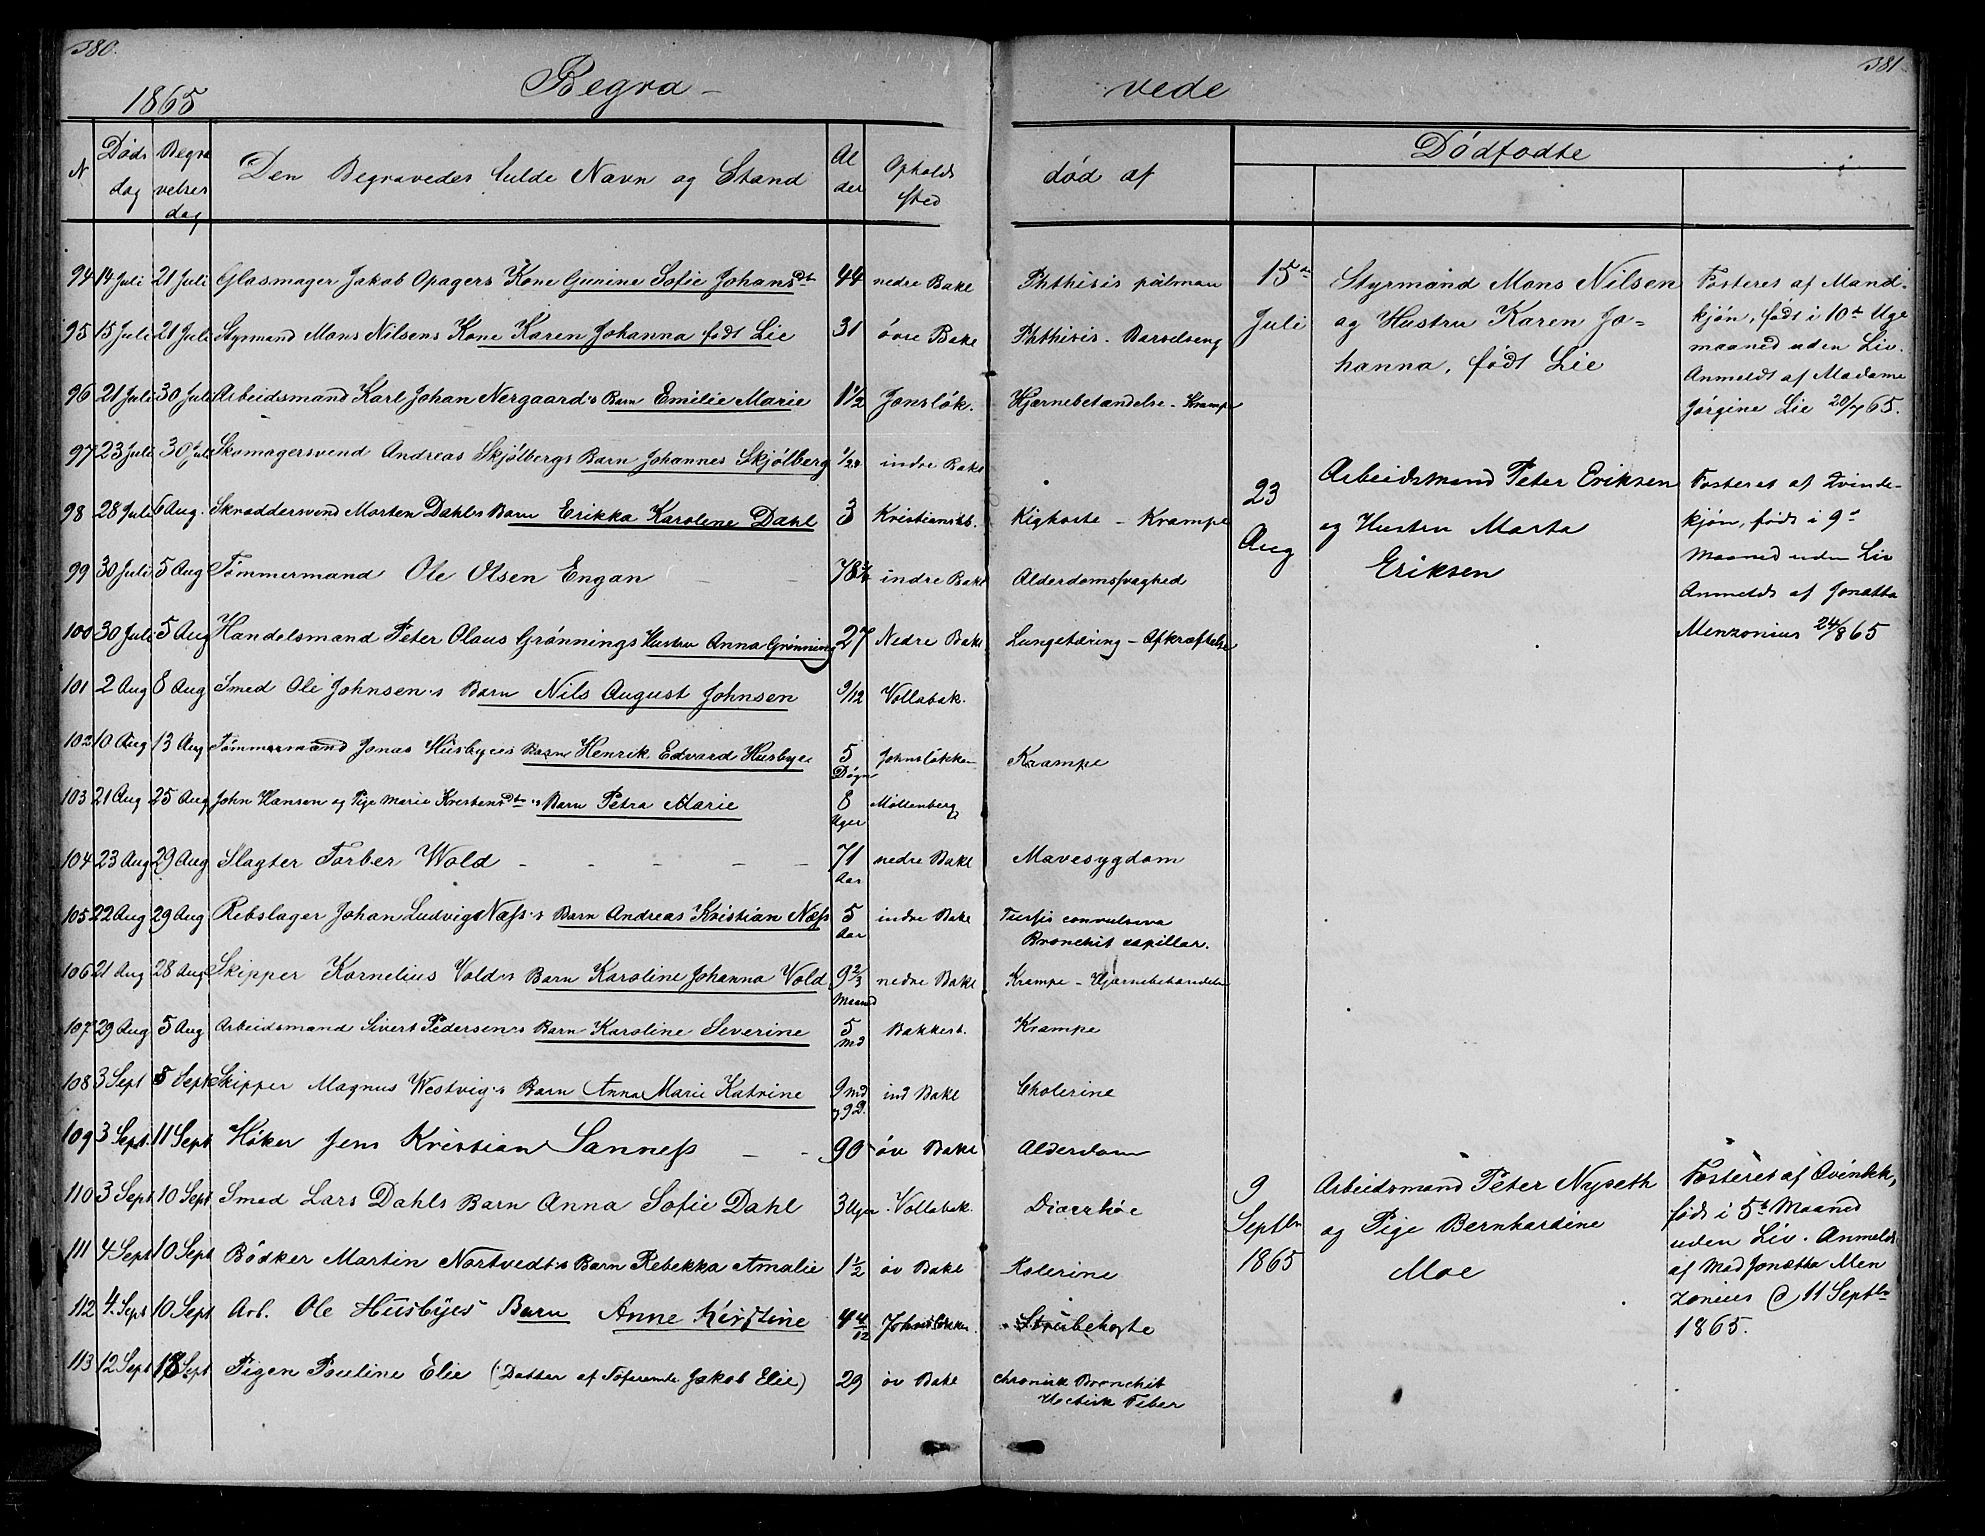 380.
381
Begra-
vede
1865
N. Døds dag Begravelses dag Den Begravedes fulde Navn og Stand Alder Opholds sted død af
Dødfødte
94 14 Juli 21 Juli Glasmager Jakob Opagers Kone Gurine Sofie Johansdt 44 nedre Bakl Phthisis pulman
95 15 Juli 21 Juli Styrmand Mons Nilsens Kone Karen Johanna født Lie 31 övre Bakl Phthisis - Barselseng
96 21 Juli 30 Juli Arbeidsmand Karl Johan Nergaard's Barn Emilie Marie 1 1/2 Jonsløk. Hjærnebetændelse - Krampe
97 23 Juli 30 Juli Skomagersvend Andreas Skjølbergs Barn Johannes Skjølberg 1/24 indre Bakl
98 28 Juli 6 Aug. Skræddersvend Morten Dahls Barn Erikka Karoline Dahl 3 Kristianstb. Kighoste - Krampe
99 30 Juli 5 Aug Tømmermand Ole Olsen Engan - - 78 indre Bakl Alderdomssvaghed
100 30 Juli 5 Aug Handelsmand Peter Olaus Grønnings Hustru Anna Grønning 27 Nedre Bakl Lungetæring - Afkræftelse
101 2 Aug 8 Aug Smed Ole Johnsen's Barn Nils August Johnsen 9/12 Vollabak.
102 10 Aug 13 Aug Tømmermand Jonas Husbyes Barn Henrik Edvard Husbye 5 Døgn Johnsløkken Krampe
103 21 Aug 25 Aug John Hansen og Pige Marie Kristensdtr's Barn Petra Marie 8 Uger Møllenberg
104 23 Aug 29 Aug Slagter Torber Wold - - - - - 71 Aar nedre Bakl Mavesygdom
105 22 Aug 29 Aug Rebslager Johan Ludvig Næss's Barn Andreas Kristian Næss 5 Aar indre Bakl Tussis convulsiva
Bronchit capillar.
106 21 Aug 28 Aug Skipper Kornelius Vold's Barn Karoline Johanna Vold 9 2/3 Maaned nedre Bakl Krampe - Hjærnebetændelse
107 29 Aug 5 Aug Arbeidsmand Sivert Pedersen's Barn Karoline Severine 5 Md Bakkest. Krampe
108 3 Sept 8 Sept Skipper Magnus Westvig's Barn Anna Marie Katrine 9 Md og 9 D. ind Bakl Cholerine
109 3 Sept. 11 Sept Høker Jens Kristian Sanness - - 90 øv Bakl Alderdom
110 3 Sept 10 Sept Smed Lars Dahls Barn Anna Sofie Dahl 3 Uger Vollabak. Diarrhöe
111 4 Sept 10 Sept Bödker Martin Nortvedt's Barn Rebekka Amalie 1 1/2 øv Bakl Kolerine
112 4 Sept 10 Sept Arb. Ole Husbyes Barn Anne Kirstine 4 4/12 Johnsløkken. Strubehoste
113 12 Sept 18 Sept Pigen Pouline Elie (Datter af Toformte Jakob Elie) 29 øv Bakl chronisk Bronchit
Hectisk Feber
15de Juli
Styrmand Mons Nilsen
og Hustru Karen Jo-
hanna, født Lie
Fosteret af Mand-
kjön, født i 10de Uge
maaned uden Liv.
Anmeldt af Madame
Jörgine Lie 20/7 65.
23 Aug
Arbeidsmand Peter Eriksen
og Hustru Marta
Eriksen
Fosteret af Kvinde-
kjön, født i 9de
Maaned uden Liv
Anmeldt af Jonetta
Menzonius 24/8 65
9 Septbr 1865
Arbeidsmand Peter Nyseth
og Pige Bernhardine
Moe
Fosteret af Qvindek,
født i 5te Maaned
uden Liv. Anmeldt
af Mad Jonetta Men
zonius d 11 Septbr
1865.